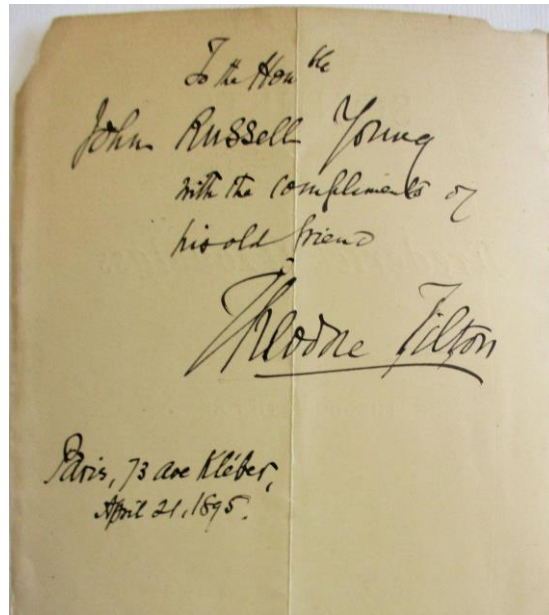 To the Hon^ble
John Russell Young
with the compliments of
his old friend
Theodore Tilton
Paris, 73 ave Kléber,
April 21, 1895.